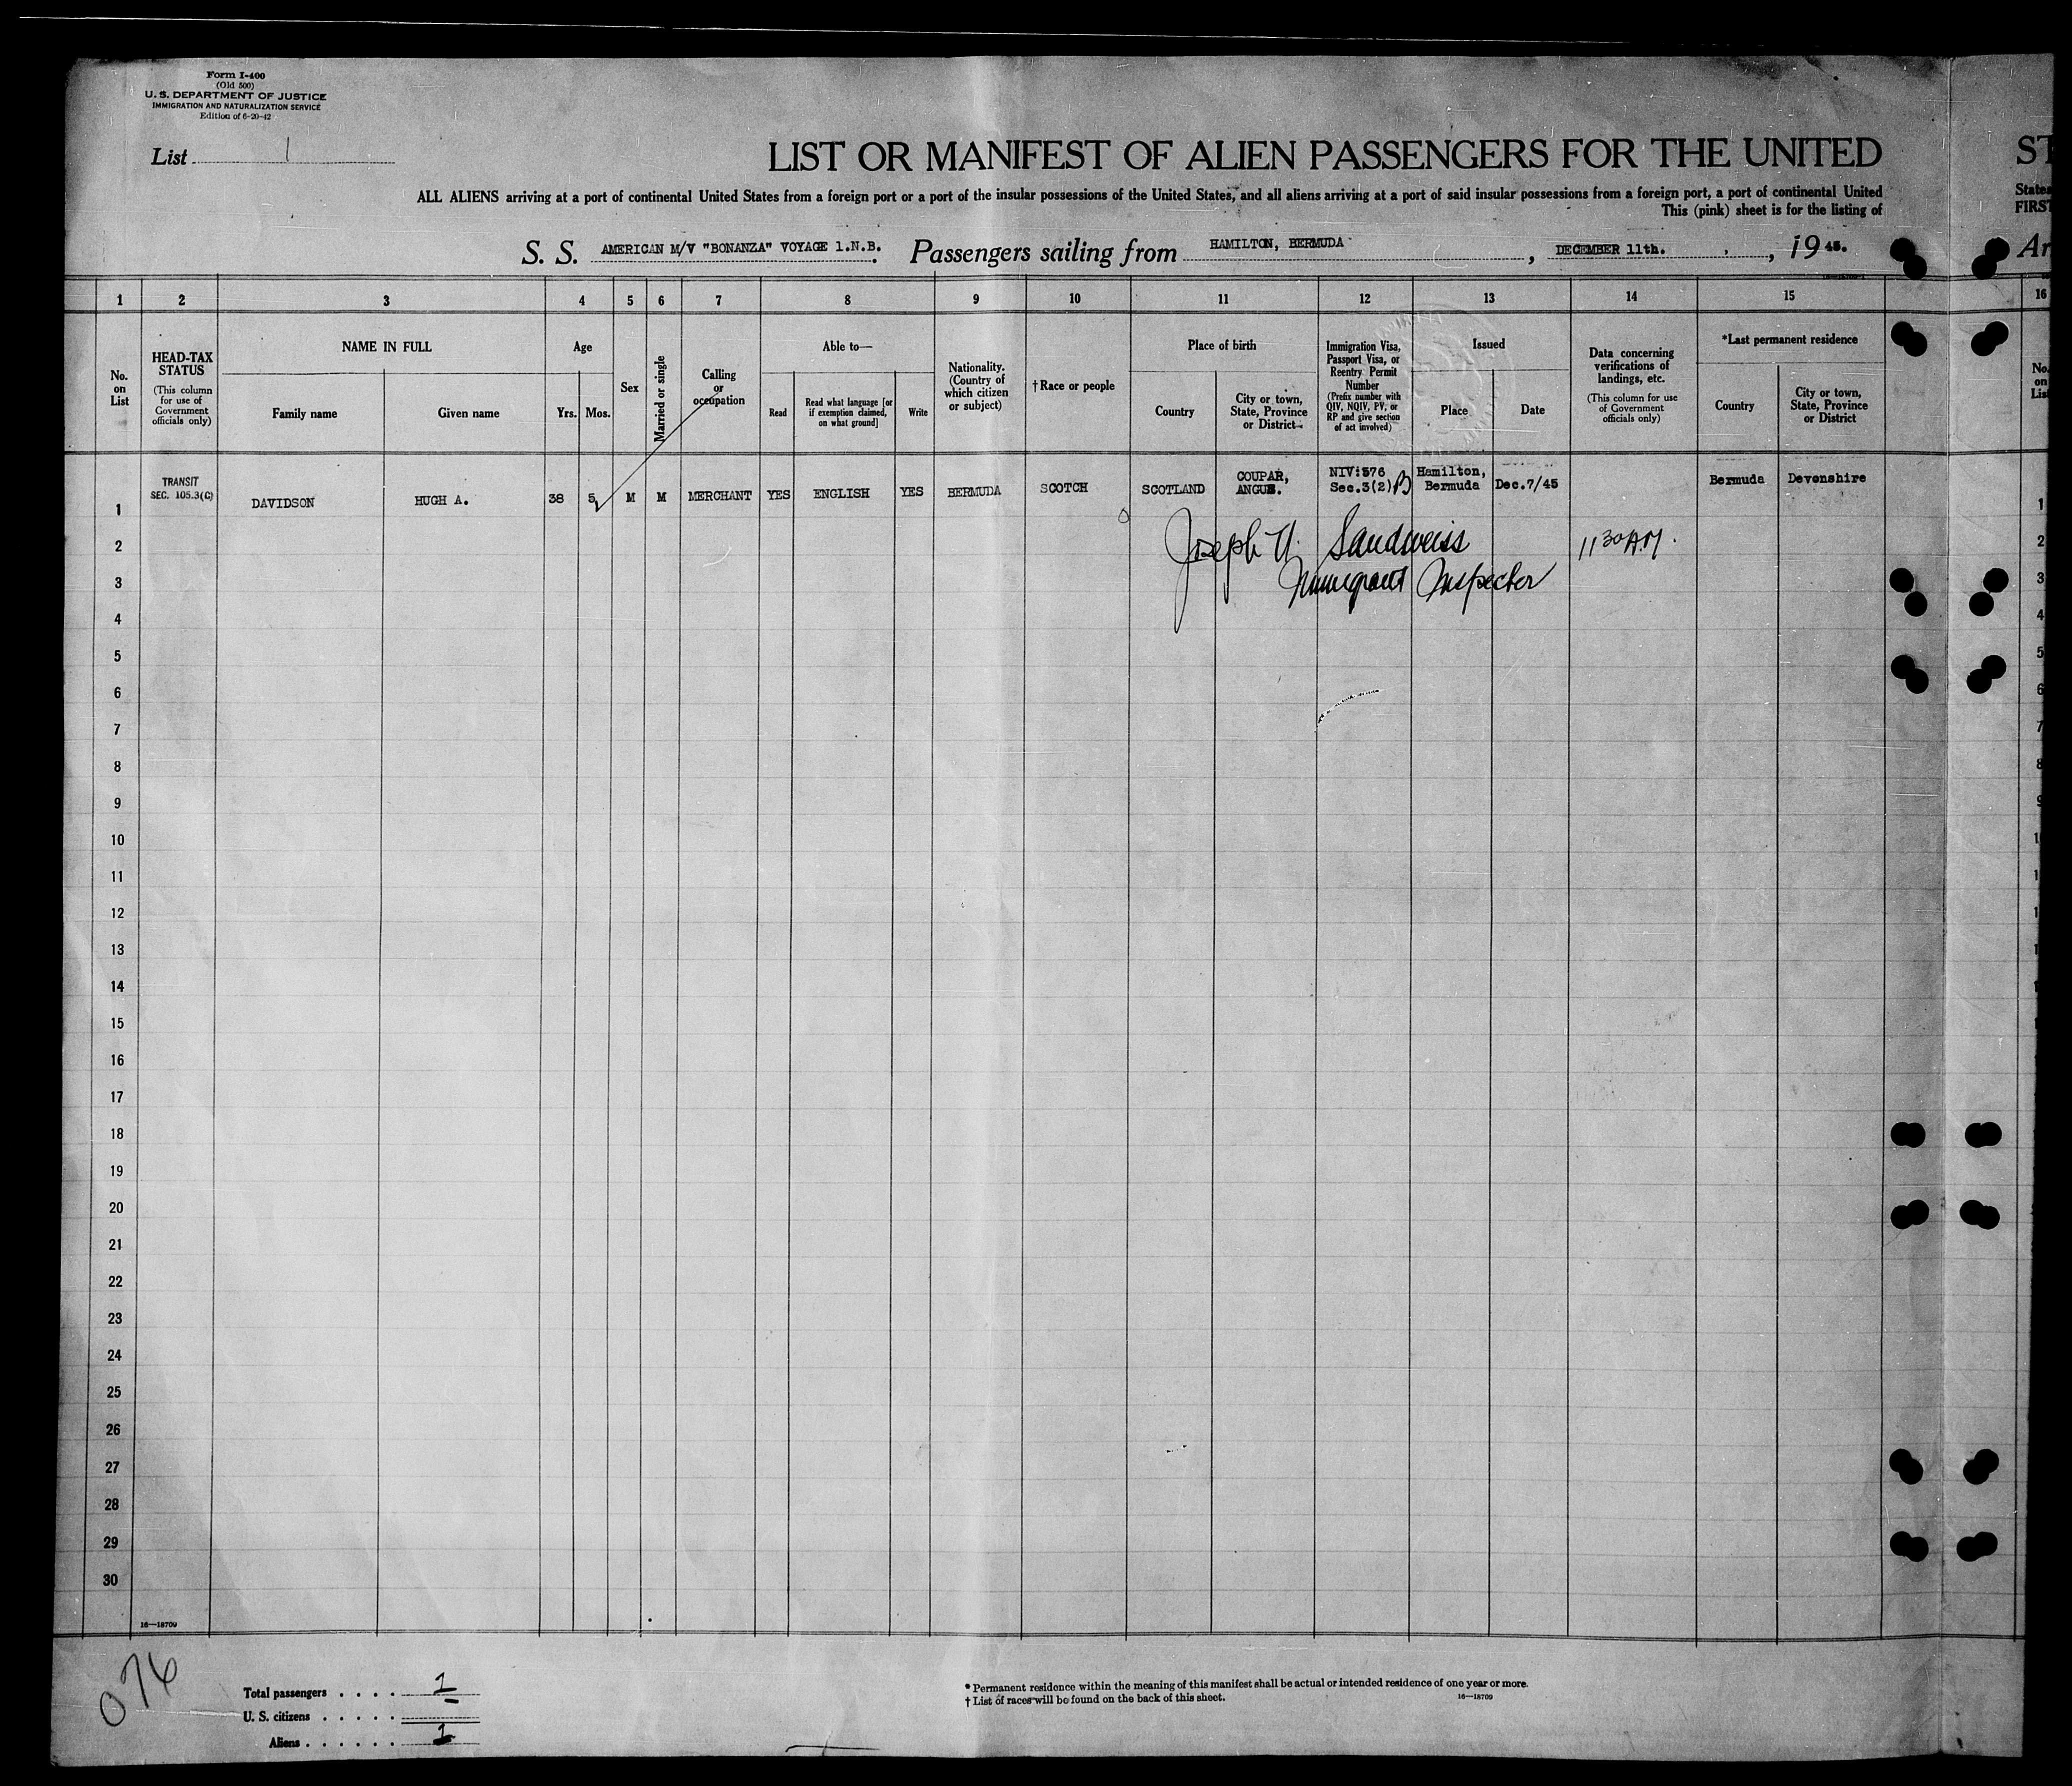 Form I-400
(Old 500)
U. S. DEPARTMENT OF JUSTICE
IMMIGRATION AND NATURALIZATION SERVICE
Edition of 6-20-42
List 1
LIST OR MANIFEST OF ALIEN PASSENGERS FOR THE UNITED
ST
ALL ALIENS arriving at a port of continental United States from a foreign port or a port of the insular possessions of the United States, and all aliens arriving at a port of said insular possessions from a foreign port, a port of continental United
States
This (pink) sheet is for the listing of
FIRST
S. S. AMERICAN M/V "BONANZA" VOYAGE 1.N.B. Passengers sailing from HAMILTON, BERMUDA , DECEMBER 11th. , 19 45.
Ar
1 2 3 4 5 6 7 8 9 10 11 12 13 14 15 16
No. on List
HEAD-TAX STATUS
(This column for use of Government officials only)
NAME IN FULL
Family name
Given name
Age
Yrs.
Mos.
Sex
Married or single
Calling or occupation
Able to—
Read
Read what language [or if exemption claimed, on what ground]
Write
Nationality. (Country of which citizen or subject)
†Race or people
Place of birth
Country
City or town, State, Province or District
Immigration Visa, Passport Visa, or Reentry Permit Number
(Prefix number with QIV, NQIV, PV, or RP and give section of act involved)
Issued
Place
Date
Data concerning verifications of landings, etc.
(This column for use of Government officials only)
*Last permanent residence
Country
City or town, State, Province or District
No. on List
1 TRANSIT SEC. 105.3(C) DAVIDSON HUGH A. 38 5 M M MERCHANT YES ENGLISH YES BERMUDA SCOTCH SCOTLAND COUPAR, ANGUS. NIV:576 Sec.3(2)B Hamilton, Bermuda Dec.7/45 Bermuda Devonshire 1
2 Joseph Sandweiss 11 30 A.M. 2
3 Immigrant Inspector 3
4 4
5 5
6 6
7 7
8 8
9 9
10 1
11 1
12 1
13 1
14
15
16
17
18
19
20
21
22
23
24
25
26
27
28
29
30
16—18709
076
Total passengers . . . . 1
U. S. citizens . . . . .
Aliens . . . . . . 1
* Permanent residence within the meaning of this manifest shall be actual or intended residence of one year or more.
† List of races will be found on the back of this sheet.
16—18709